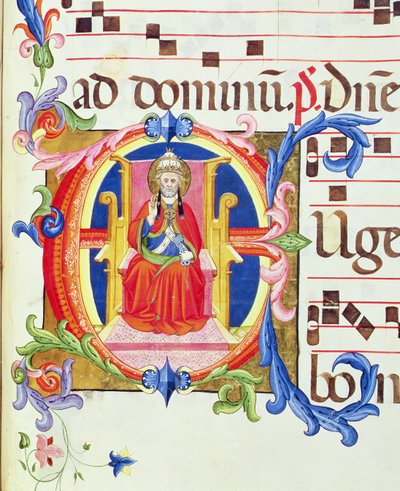 ad dominū. ps. Dn̄e
EUge
bon